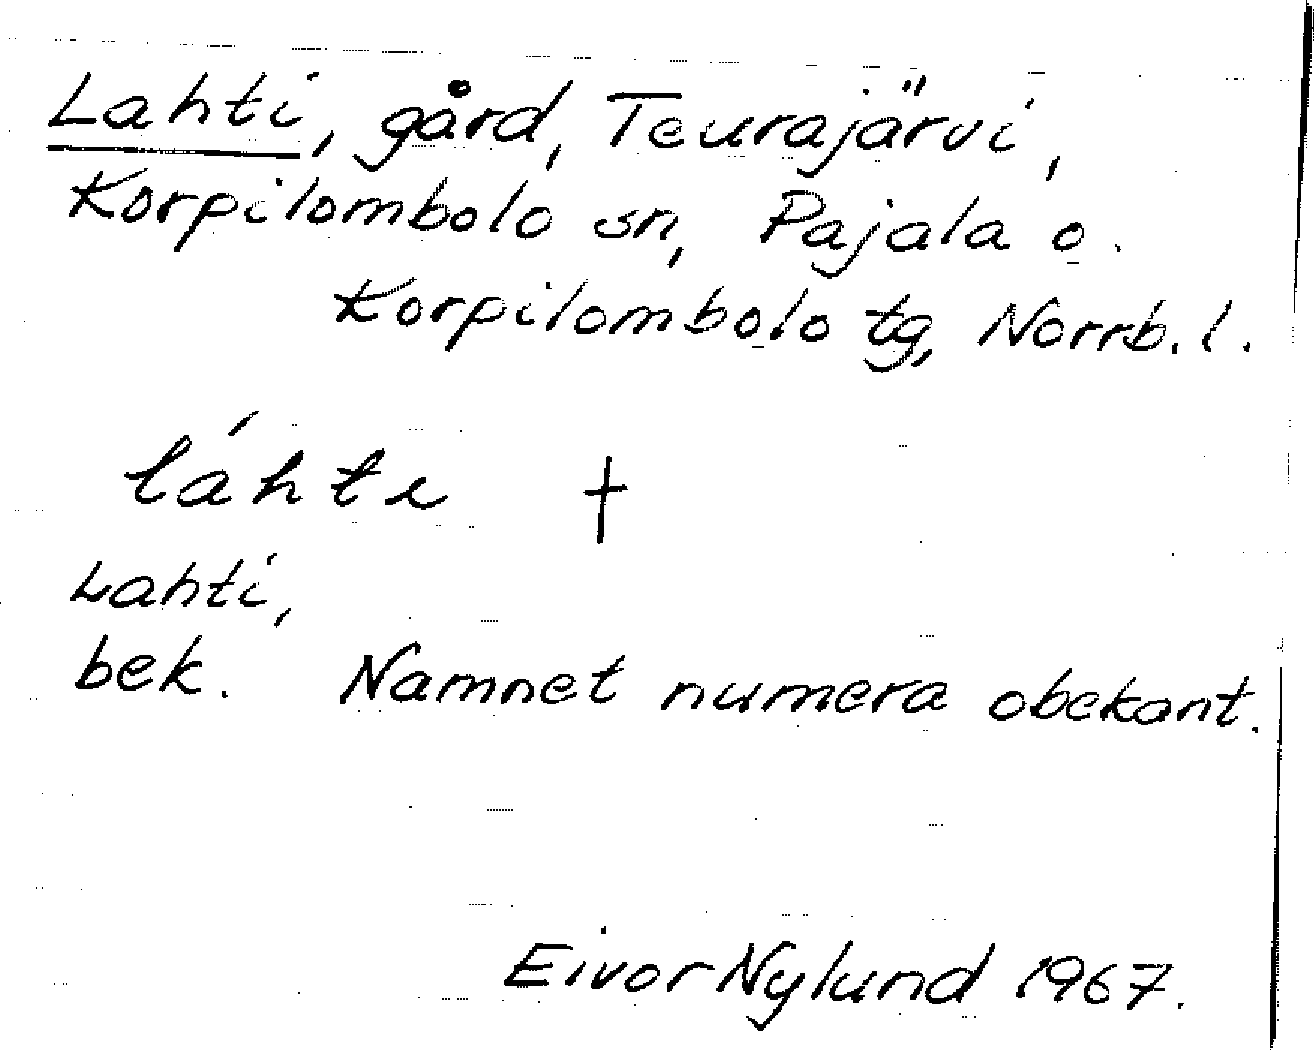 Lahti, gård, Teurajärvi,
Korpilombolo sn, Pajala o.
Korpilombolo tg, Norrb. l.
láhtɩ †
Lahti,
bek. Namnet numera obekant.
Eivor Nylund 1967.